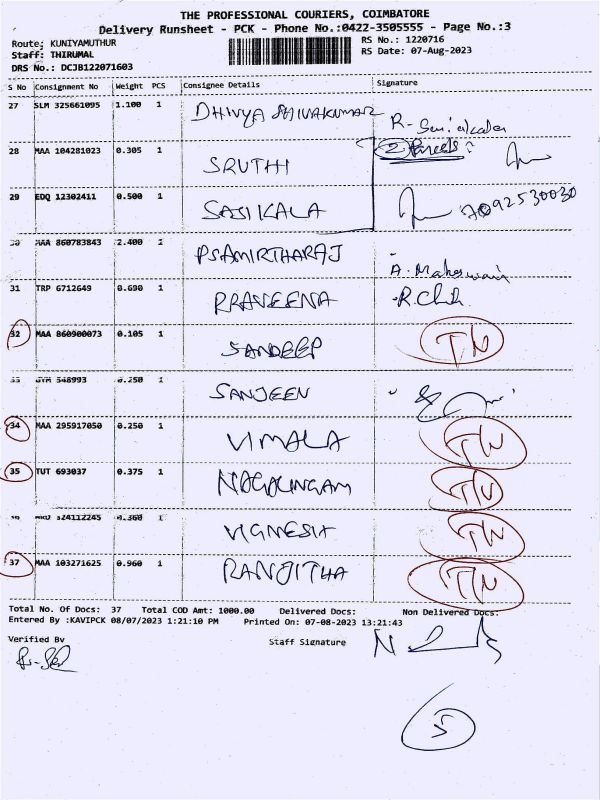 THE PROFESSIONAL COURIERS, COIMBATORE
Delivery Runsheet - PCK - Phone No.:0422-3505555 - Page No.:3
Route: KUNIYAMUTHUR RS No.: 1220716
Staff: THIRUMAL RS Date: 07-Aug-2023
DRS No.: DCJB122071603
S No Consignment No Weight PCS Consignee Details Signature
27 SLM 325661095 1.100 1 DHIVYA SHIVAKUMAR
28 MAA 104281023 0.305 1 SRUTHI 2 Parcels
29 EDQ 12302411 0.500 1 SASIKALA 7092530030
30 MAA 860783843 2.400 1 PSAMIRTHARAJ A. Maheswari
31 TRP 6712649 0.690 1 PRAVEENA
32 MAA 860900073 0.105 1 SANDEEP TN
33 548993 0.250 1 SANJEEN
34 MAA 295917050 0.250 1 VIMALA TN
35 TUT 693037 0.375 1 NAGALINGAM TN
36 324112245 0.360 1 VIGNESH TN
37 MAA 103271625 0.960 1 RANJITHA TN
Total No. Of Docs: 37 Total COD Amt: 1000.00 Delivered Docs: Non Delivered Docs:
Entered By :KAVIPCK 08/07/2023 1:21:10 PM Printed On: 07-08-2023 13:21:43
Verified By Staff Signature
5